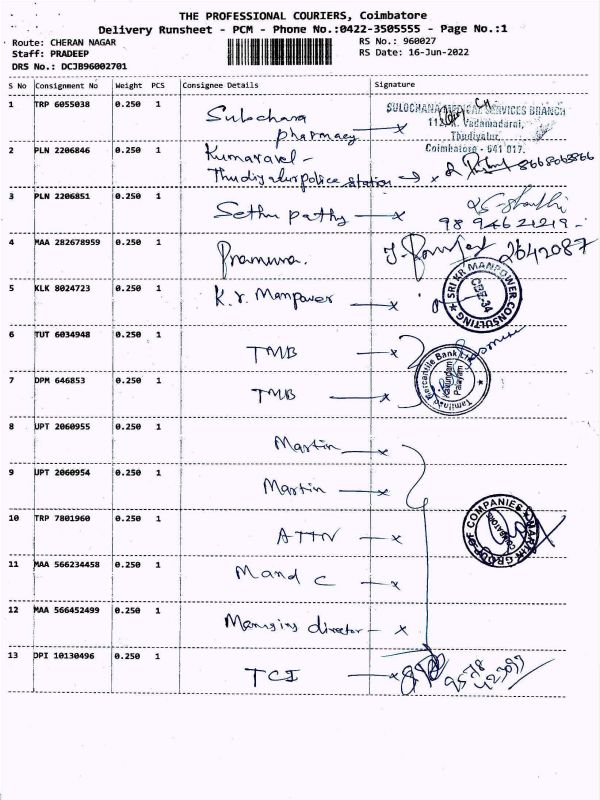 THE PROFESSIONAL COURIERS, Coimbatore
Delivery Runsheet - PCM - Phone No.:0422-3505555 - Page No.:1
Route: CHERAN NAGAR
RS No.: 960027
Staff: PRADEEP
RS Date: 16-Jun-2022
DRS No.: DCJB96002701
S No Consignment No Weight PCS Consignee Details Signature
1 TRP 6055038 0.250 1 Sulochana
pharmacy
SULOCHANA MEDICAL SERVICES BRANCH
Vadamadurai,
Thudiyalur,
Coimbatore - 641 017.
2 PLN 2206846 0.250 1 Kumaravel -
Thudiyalur police station 8668063866
3 PLN 2206851 0.250 1 Sethu pathy
98 94621219
4 MAA 282678959 0.250 1 2642087
5 KLK 8024723 0.250 1 K.r. Manpower
SRI KR MANPOWER CONSULTING CBE-34
6 TUT 6034948 0.250 1 TMB
7 DPM 646853 0.250 1 TMB
Tamilnad Mercantile Bank Ltd
8 UPT 2060955 0.250 1 Martin
9 UPT 2060954 0.250 1 Martin
10 TRP 7801960 0.250 1 ATTN
MARTIN GROUP OF COMPANIES COIMBATORE
11 MAA 566234458 0.250 1 Mand C
12 MAA 566452499 0.250 1 Managing director
13 DPI 10130496 0.250 1 TCI